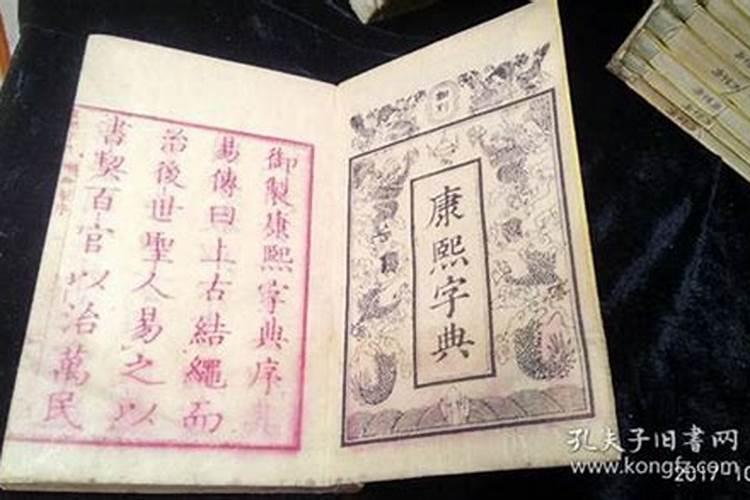 康熙字典
御製康熙字典序
易傳曰上古結繩而
治後世聖人易之以
書契百官以治萬民
孔夫子旧書网
www.kongfz.com
2017 10